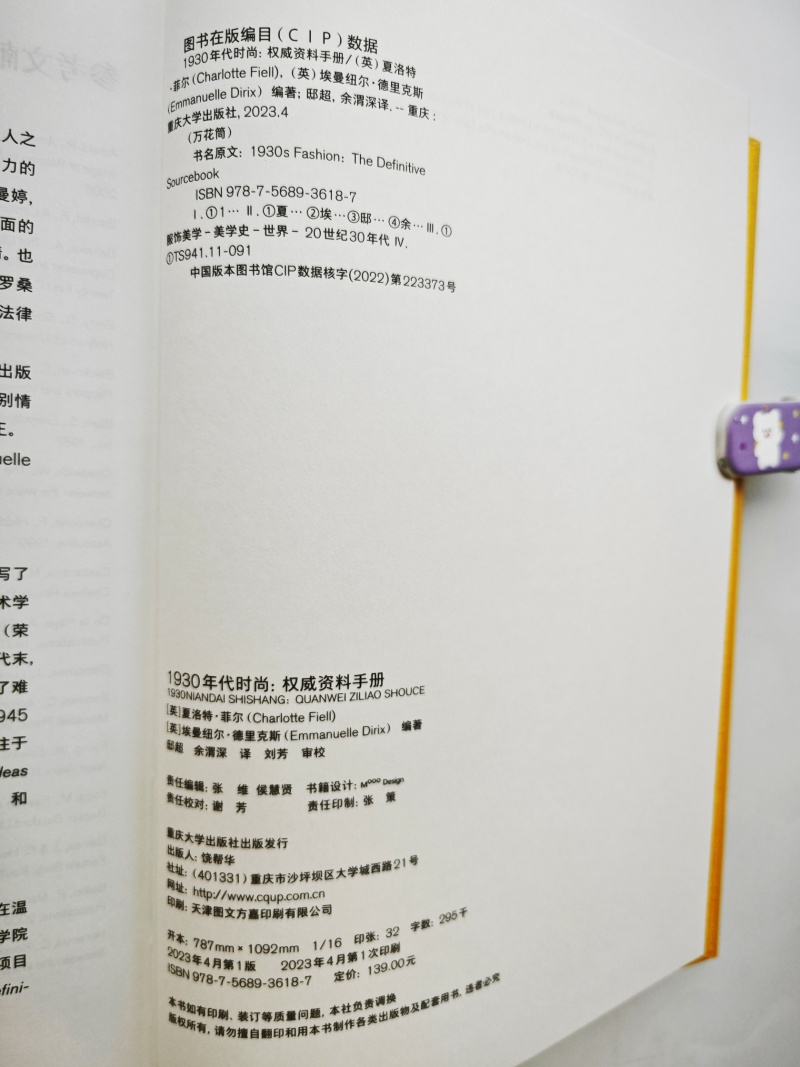 人之
力的
曼婷,
面的
也
罗桑
法律
出版
别情
王。
uelle
写了
术学
（荣
代末,
了难
945
注于
deas
和
在温
学院
项目
efini-
图书在版编目（CIP）数据
1930年代时尚：权威资料手册/（英）夏洛特
·菲尔（Charlotte Fiell），（英）埃曼纽尔·德里克斯
（Emmanuelle Dirix） 编著；邸超，余渭深译. -- 重庆：
重庆大学出版社，2023.4
（万花筒）
书名原文：1930s Fashion: The Definitive
Sourcebook
ISBN 978-7-5689-3618-7
Ⅰ.①1… Ⅱ.①夏…②埃…③邸…④余…Ⅲ.①
服饰美学－美学史－世界－20世纪30年代 Ⅳ.
①TS941.11-091
中国版本图书馆CIP数据核字（2022）第223373号
1930年代时尚：权威资料手册
1930NIANDAI SHISHANG: QUANWEI ZILIAO SHOUCE
[英]夏洛特·菲尔（Charlotte Fiell）
[英]埃曼纽尔·德里克斯（Emmanuelle Dirix） 编著
邸超 余渭深 译 刘芳 审校
责任编辑：张 维 侯慧贤 书籍设计：Mooo Design
责任校对：谢 芳 责任印制：张 策
重庆大学出版社出版发行
出版人：饶帮华
社址：（401331）重庆市沙坪坝区大学城西路21号
网址：http://www.cqup.com.cn
印刷：天津图文方嘉印刷有限公司
开本：787mm×1092mm 1/16 印张：32 字数：295千
2023年4月第1版 2023年4月第1次印刷
ISBN 978-7-5689-3618-7 定价：139.00元
本书如有印刷、装订等质量问题，本社负责调换
版权所有，请勿擅自翻印和用本书制作各类出版物及配套用书，违者必究